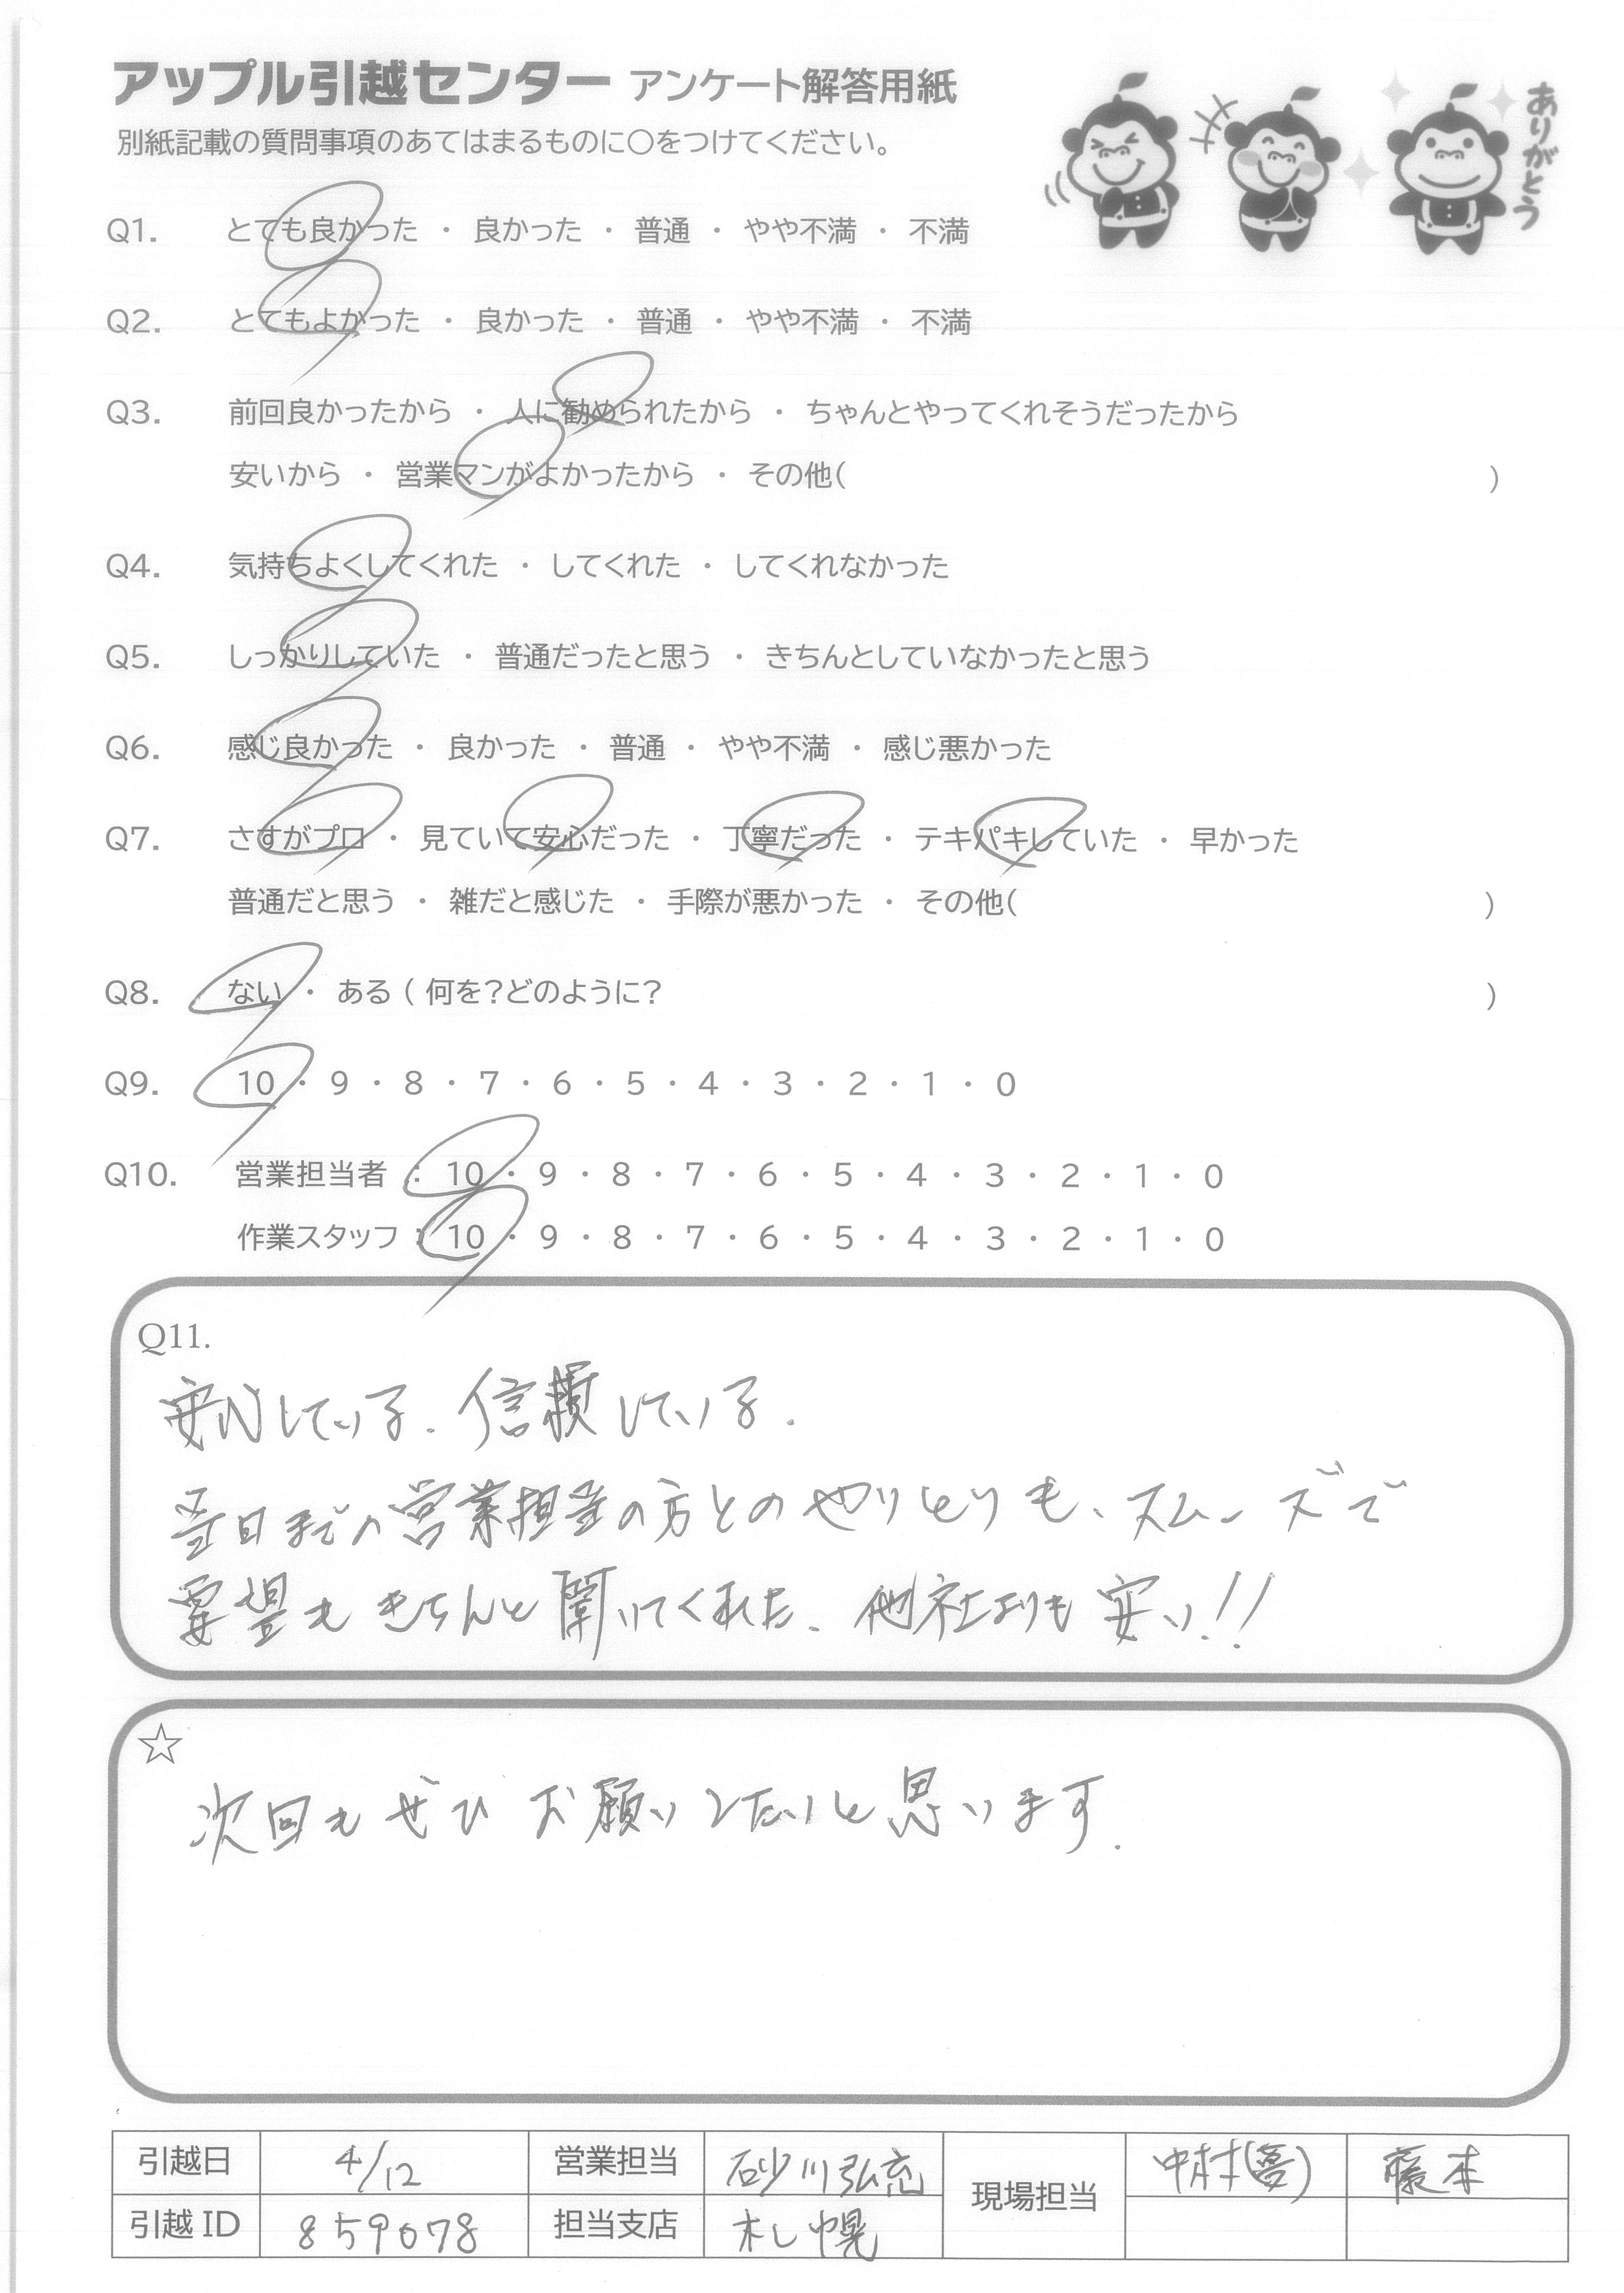 アップル引越センター アンケート解答用紙
別紙記載の質問事項のあてはまるものに○をつけてください。
ありがとう
Q1. とても良かった ・ 良かった ・ 普通 ・ やや不満 ・ 不満
Q2. とてもよかった ・ 良かった ・ 普通 ・ やや不満 ・ 不満
Q3. 前回良かったから ・ 人に勧められたから ・ ちゃんとやってくれそうだったから
安いから ・ 営業マンがよかったから ・ その他( )
Q4. 気持ちよくしてくれた ・ してくれた ・ してくれなかった
Q5. しっかりしていた ・ 普通だったと思う ・ きちんとしていなかったと思う
Q6. 感じ良かった ・ 良かった ・ 普通 ・ やや不満 ・ 感じ悪かった
Q7. さすがプロ ・ 見ていて安心だった ・ 丁寧だった ・ テキパキしていた ・ 早かった
普通だと思う ・ 雑だと感じた ・ 手際が悪かった ・ その他( )
Q8. ない ・ ある ( 何を?どのように? )
Q9. 10 ・ 9 ・ 8 ・ 7 ・ 6 ・ 5 ・ 4 ・ 3 ・ 2 ・ 1 ・ 0
Q10. 営業担当者 : 10 ・ 9 ・ 8 ・ 7 ・ 6 ・ 5 ・ 4 ・ 3 ・ 2 ・ 1 ・ 0
作業スタッフ : 10 ・ 9 ・ 8 ・ 7 ・ 6 ・ 5 ・ 4 ・ 3 ・ 2 ・ 1 ・ 0
Q11.
安心している. 信頼している.
当日までの営業担当の方とのやりとりも、スムーズで
要望もきちんと聞いてくれた. 他社よりも安い!!
☆
次回もぜひお願いしたいと思います.
引越日 4/12 営業担当 砂川弘充 現場担当 中村(夢) 藤本
引越 ID 859078 担当支店 札幌